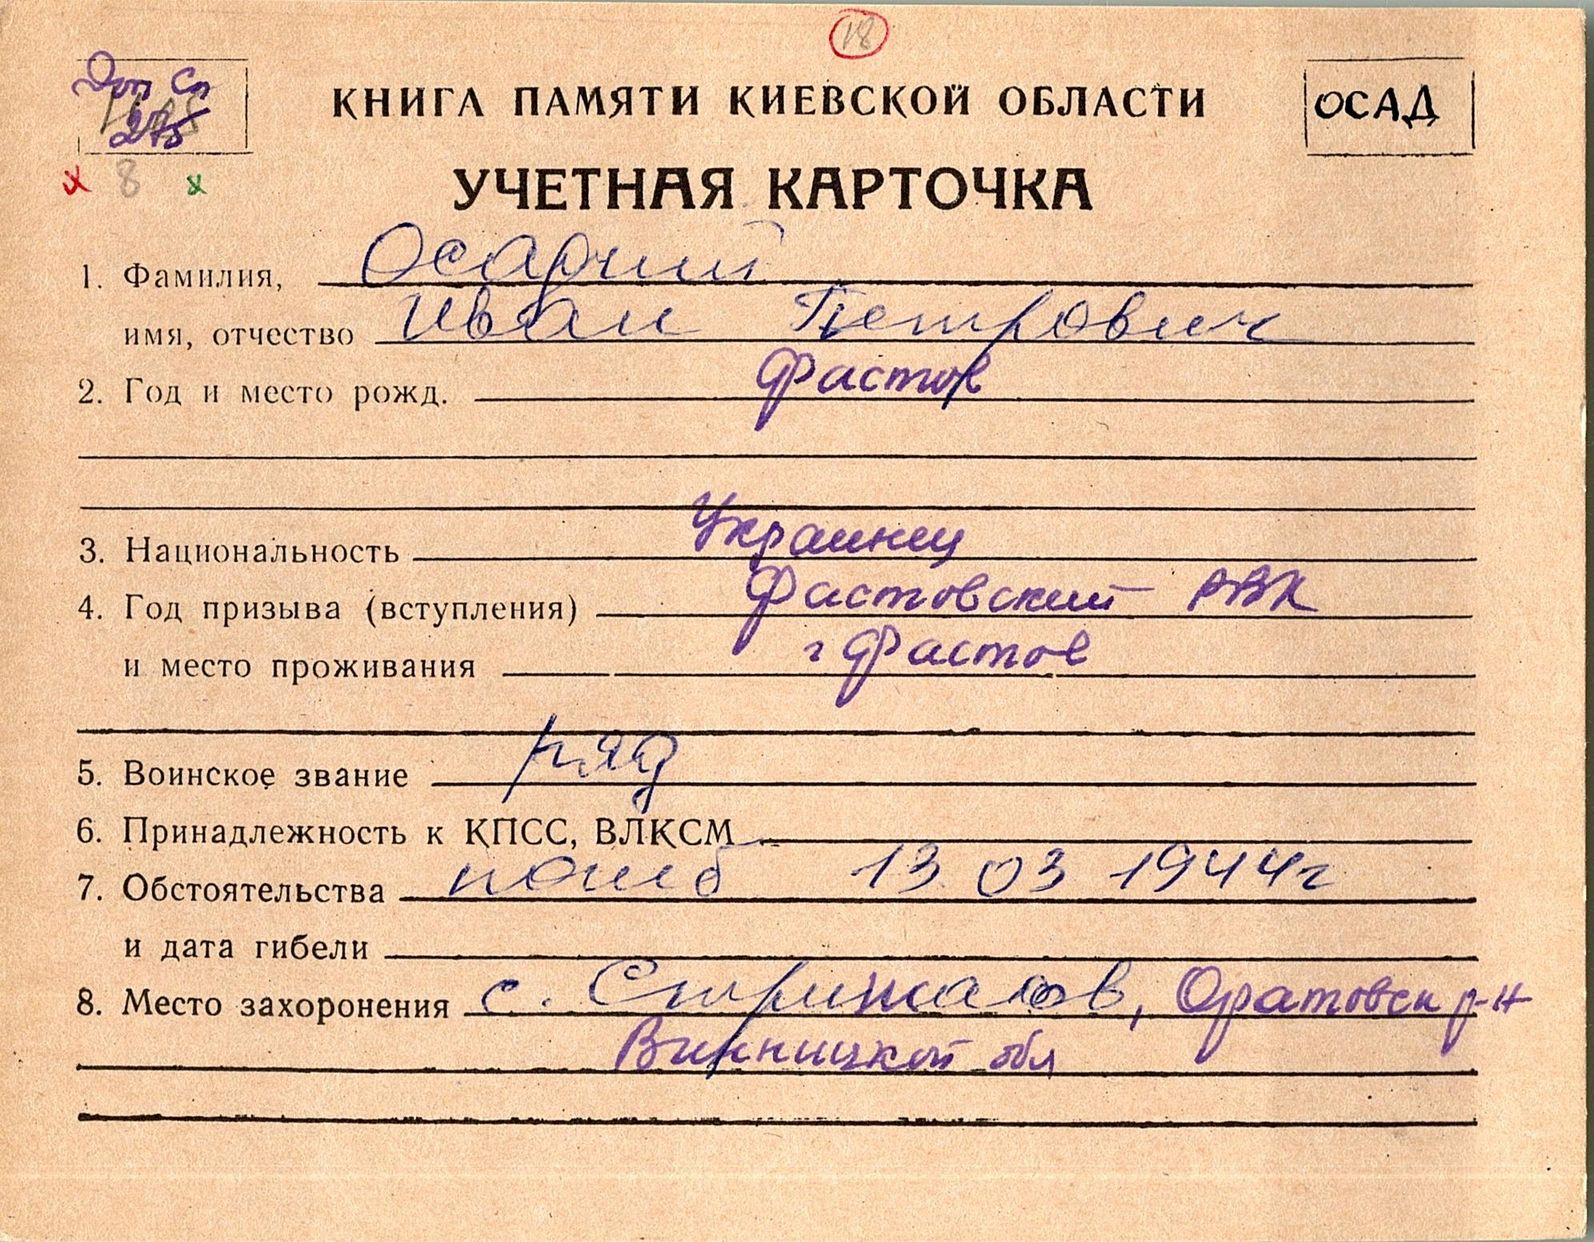 18
Доп Сп
275
КНИГА ПАМЯТИ КИЕВСКОЙ ОБЛАСТИ
ОСАД
8
УЧЕТНАЯ КАРТОЧКА
1. Фамилия, Осадчий
имя, отчество Иван Петрович
2. Год и место рожд. Фастов
3. Национальность Украинец
4. Год призыва (вступления) Фастовский РВК
и место проживания г Фастов
5. Воинское звание ряд
6. Принадлежность к КПСС, ВЛКСМ
7. Обстоятельства погиб 13 03 1944г
и дата гибели
8. Место захоронения с. Стрижаков, Оратовск р-н
Винницкой обл